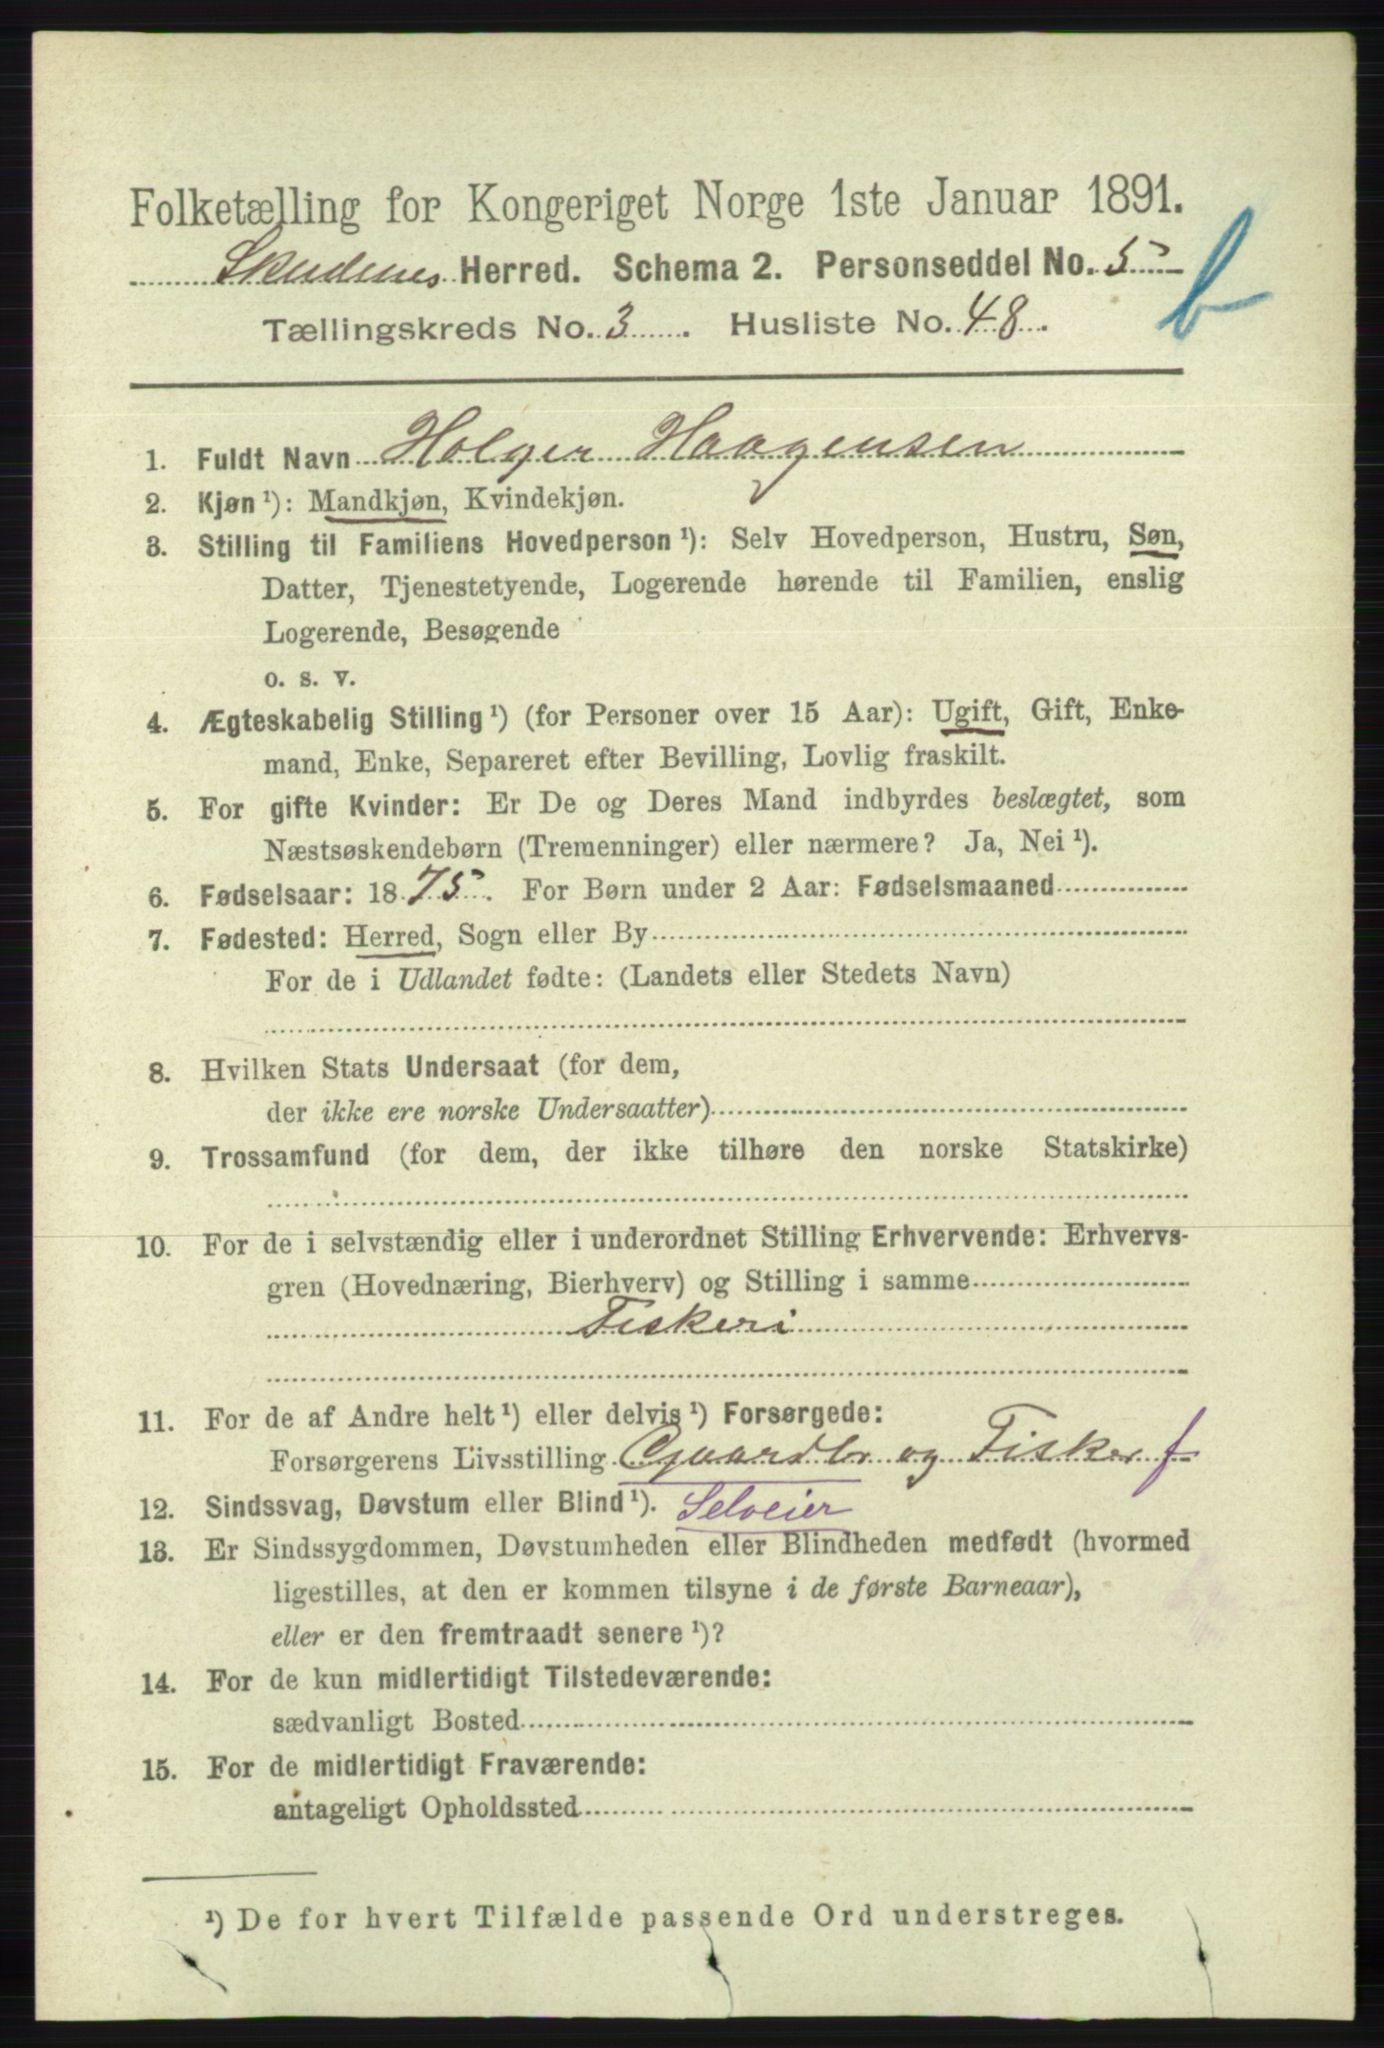 Folketælling for Kongeriget Norge 1ste Januar 1891.
Skudenes Herred. Schema 2. Personseddel No. 5
b
Tællingskreds No. 3. Husliste No. 48.
1. Fuldt Navn Holger Haagensen
2. Kjøn ¹): Mandkjøn, Kvindekjøn.
3. Stilling til Familiens Hovedperson ¹): Selv Hovedperson, Hustru, Søn,
Datter, Tjenestetyende, Logerende hørende til Familien, enslig
Logerende, Besøgende
o. s. v.
4. Ægteskabelig Stilling ¹) (for Personer over 15 Aar): Ugift, Gift, Enke-
mand, Enke, Separeret efter Bevilling, Lovlig fraskilt.
5. For gifte Kvinder: Er De og Deres Mand indbyrdes beslægtet, som
Næstsøskendebørn (Tremenninger) eller nærmere? Ja, Nei ¹).
6. Fødselsaar: 1875. For Børn under 2 Aar: Fødselsmaaned
7. Fødested: Herred, Sogn eller By
For de i Udlandet fødte: (Landets eller Stedets Navn)
8. Hvilken Stats Undersaat (for dem,
der ikke ere norske Undersaatter)
9. Trossamfund (for dem, der ikke tilhøre den norske Statskirke)
10. For de i selvstændig eller i underordnet Stilling Erhvervende: Erhvervs-
gren (Hovednæring, Bierhverv) og Stilling i samme
Fiskeri
11. For de af Andre helt ¹) eller delvis ¹) Forsørgede:
Forsørgerens Livsstilling Gaardbr. og Fisker f
12. Sindssvag, Døvstum eller Blind ¹). Selveier
13. Er Sindssygdommen, Døvstumheden eller Blindheden medfødt (hvormed
ligestilles, at den er kommen tilsyne i de første Barneaar),
eller er den fremtraadt senere ¹)?
14. For de kun midlertidigt Tilstedeværende:
sædvanligt Bosted
15. For de midlertidigt Fraværende:
antageligt Opholdssted
¹) De for hvert Tilfælde passende Ord understreges.